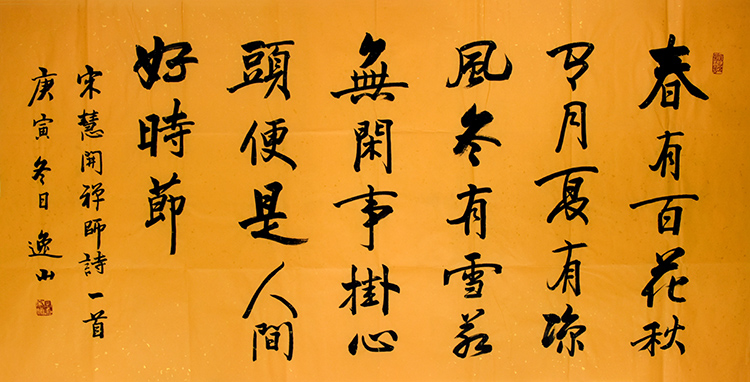 春有百花秋
有月夏有涼
風冬有雪若
無閑事掛心
頭便是人間
好時節
宋慧開禪師詩一首
庚寅冬日逸山